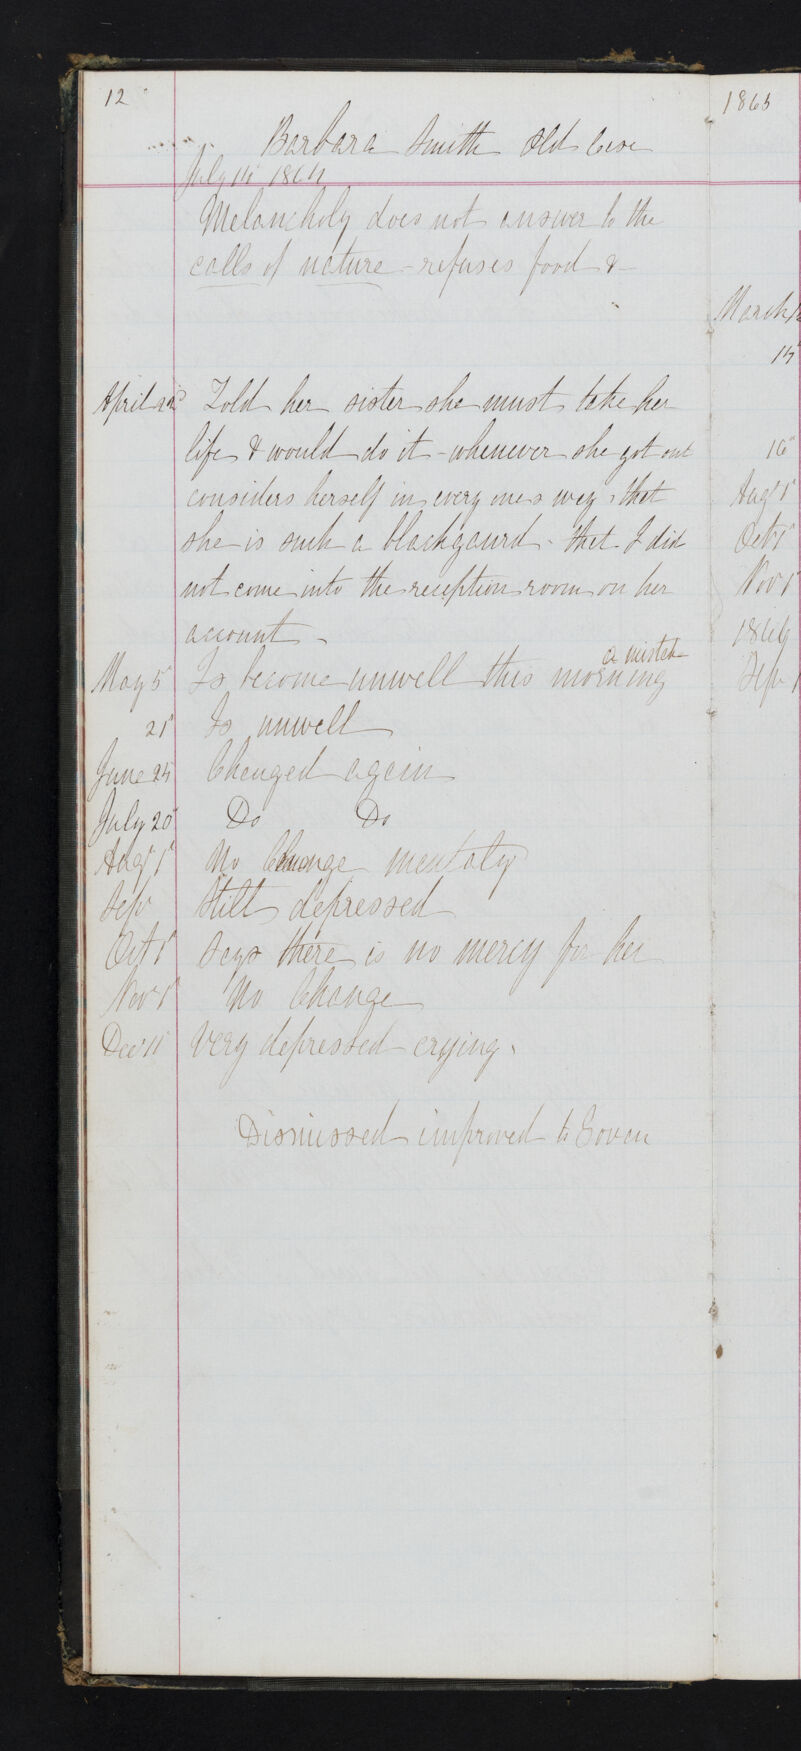 12
Barbara Smith Old Case
July 14 1864
Melancholy does not answer to the
calls of nature - refuses food &
April 22d Told her sister she must take her
life & would do it - whenever she got out
considers herself in every ones way, that
she is such a blackgaurd - that I did
not come into the reception room on her
account -
a mistake
May 5" Is become unwell this morning
21" Is unwell
June 24 Changed again
July 20" Do Do
Augt 1" No Change mentaly
Sepr Still depressed
Oct 1" Says there is no mercy for her
Nov 1" No Change
Decr 11 Very depressed - crying.
Dismissed improved to
1865
March
15
16"
Augt 1"
Oct 1"
Nov 1"
1866
Sepr 1